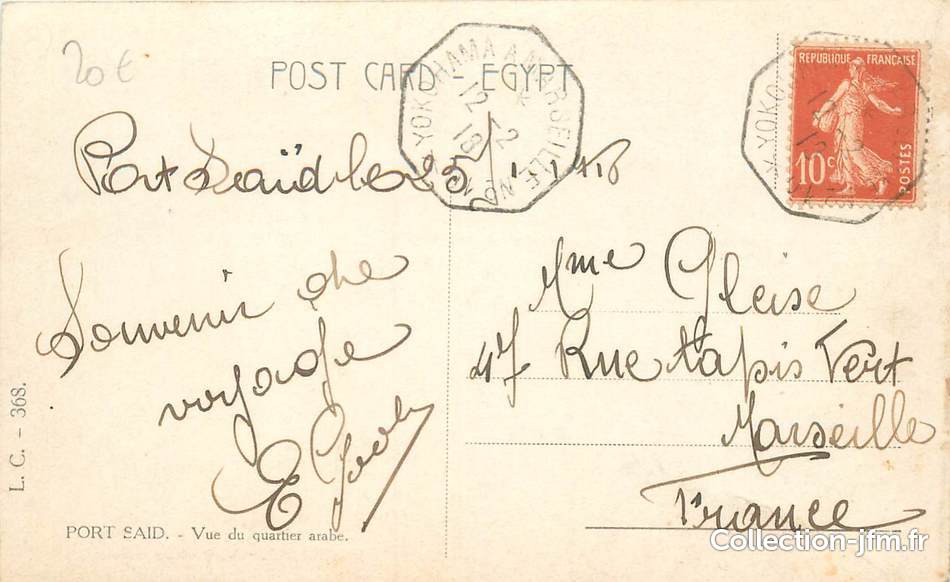 20€
POST CARD - EGYPT
YOKOHAMA A MARSEILLE No
12
2
18
RÉPUBLIQUE FRANÇAISE
10c
POSTES
YOKO
12
Port Saïd le 25
Souvenir de
voyage
E
Mme Gleise
47 Rue Tapis Vert
Marseille
France
L. C. - 368.
PORT SAID. - Vue du quartier arabe.
Collection-jfm.fr